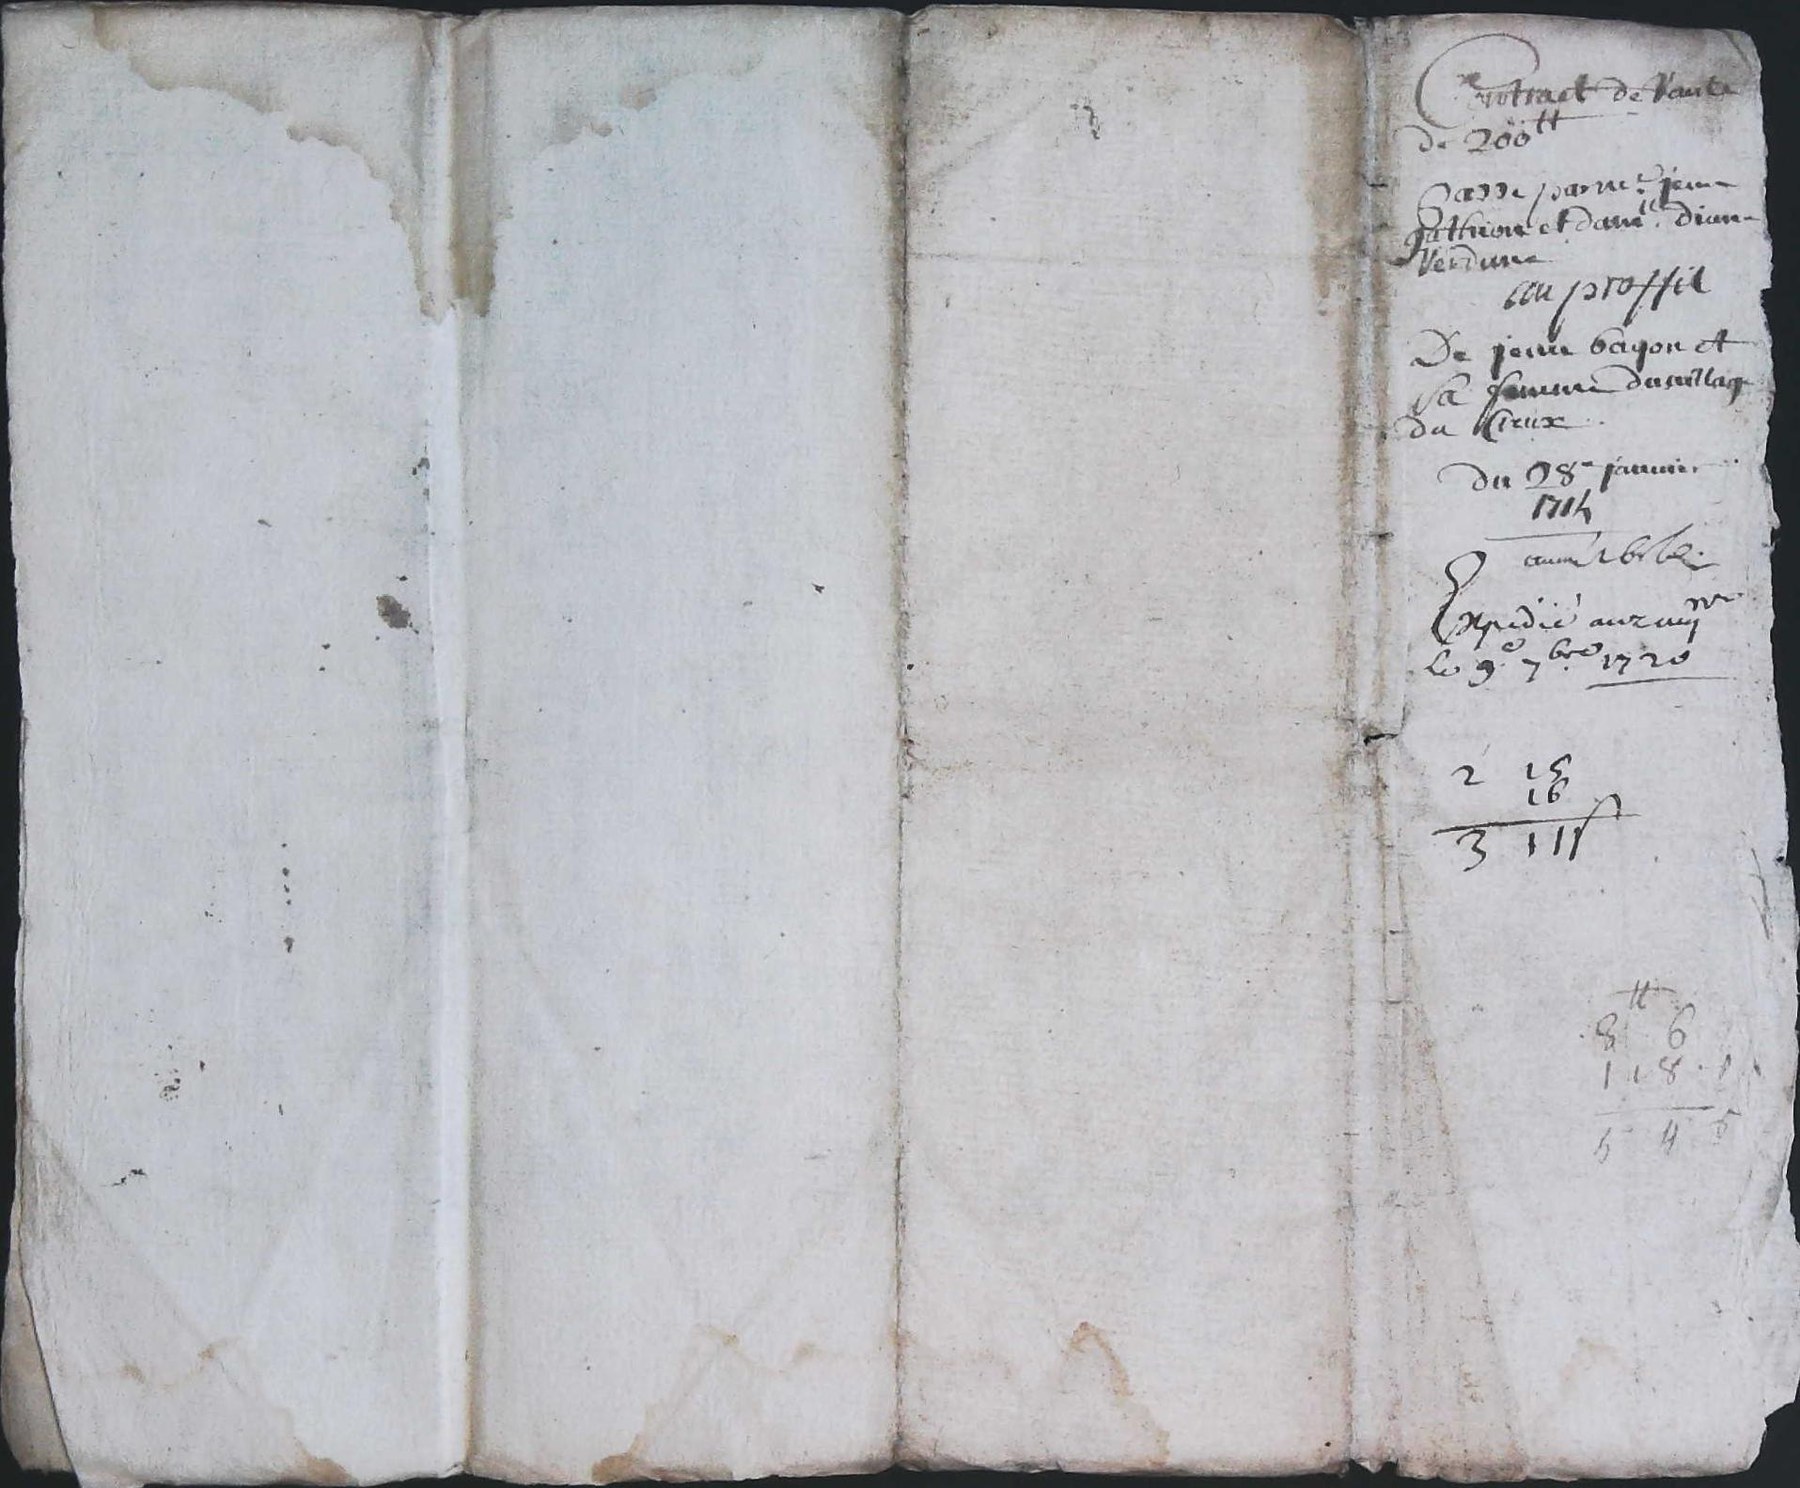 Contract de Vante
de 200tt
Passe par me jean
et dam.lle diane
Verdune
au proffit
De jean bayon et
sa femme du village
du Creux
du 28e janvier
1714
Expedié
Le 9e 7bre 1720
2 15
16
3 11 s
tt
8 6
1 18
5 4 5